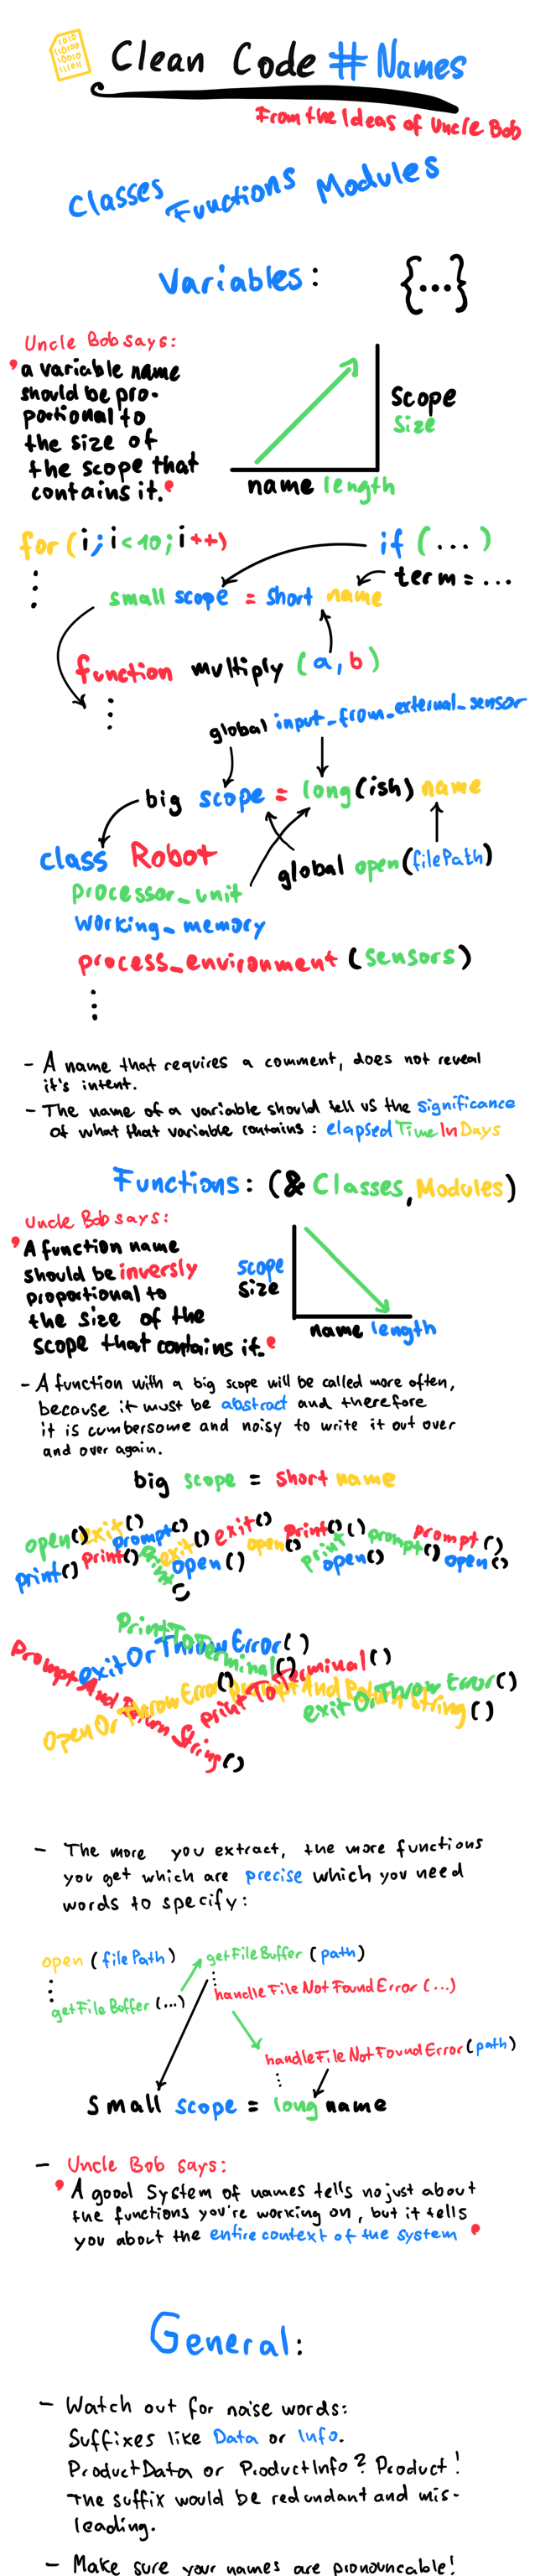 1010
110100
00010
11011
Clean Code # Names
From the Ideas of Uncle Bob
Classes Functions Modules
Variables: {...}
Uncle Bob says:
'a variable name
should be pro-
portional to
the size of
the scope that
contains it.'
scope
size
name length
for (i; i<10; i++)
if (...)
term = ...
small scope = short name
function multiply (a, b)
global input_from_external_sensor
big scope = long(ish) name
class Robot
global open(filePath)
processor_unit
working_memory
process_environment (sensors)
- A name that requires a comment, does not reveal
it's intent.
- The name of a variable should tell us the significance
of what that variable contains: elapsedTimeInDays
Functions: (& Classes, Modules)
Uncle Bob says:
'A function name
should be inversly
proportional to
the size of the
scope that contains it.'
scope
size
name length
- A function with a big scope will be called more often,
because it must be abstract and therefore
it is cumbersome and noisy to write it out over
and over again.
big scope = short name
open() exit() prompt() exit() exit() print() () prompt() prompt()
print() print() print() open() open() print open() open()
PrintToTerminal()
exitOrThrowError()
PromptAndReturnString()
printToTerminal()
OpenOrThrowError()
PromptAndReturnString()
exitOrThrowError()
- The more you extract, the more functions
you get which are precise which you need
words to specify:
open (filePath)
getFileBuffer (path)
getFileBuffer (...)
handleFileNotFoundError (...)
handleFileNotFoundError (path)
small scope = long name
- Uncle Bob says:
'A good system of names tells no just about
the functions you're working on, but it tells
you about the entire context of the system'
General:
- Watch out for noise words:
Suffixes like Data or Info.
ProductData or ProductInfo? Product!
The suffix would be redundant and mis-
leading.
- Make sure your names are pronouncable!